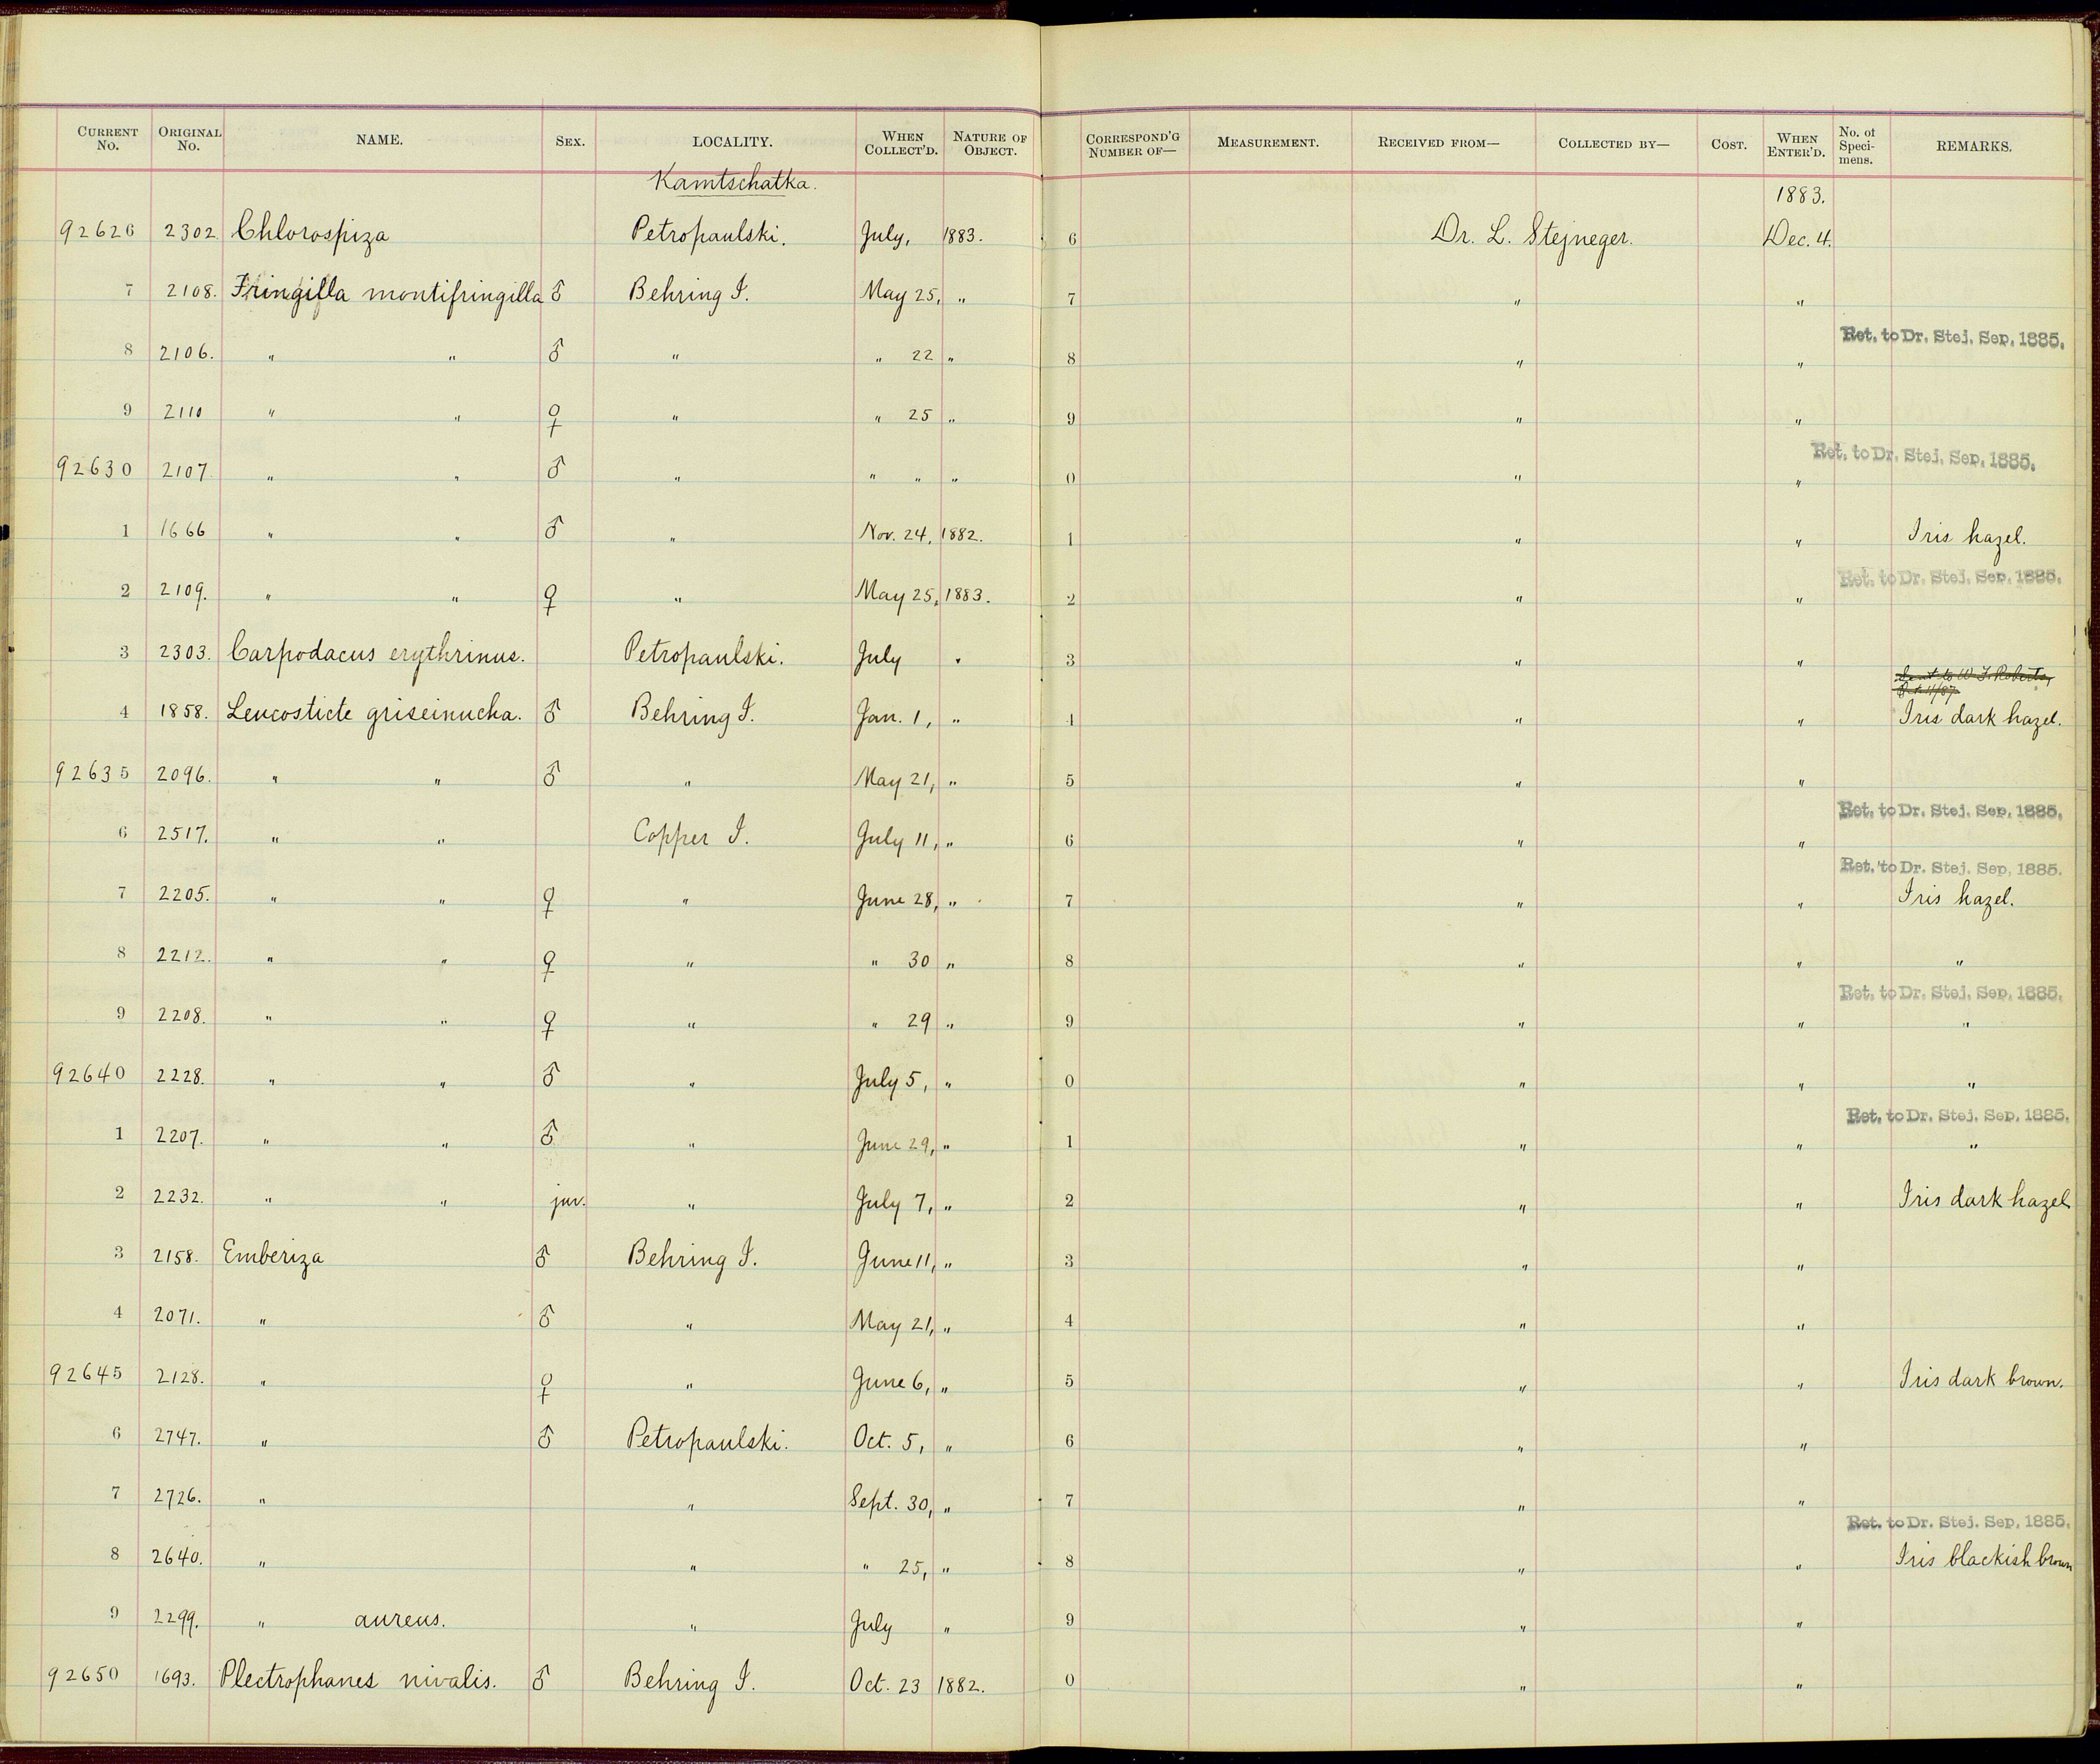 CURRENT No. ORIGINAL No. NAME. SEX. LOCALITY. WHEN COLLECT'D. NATURE OF OBJECT. CORRESPOND'G NUMBER OF— MEASUREMENT. RECEIVED FROM— COLLECTED BY— COST. WHEN ENTER'D. No. of Specimens. REMARKS.
Kamtschatka. 1883.
92626 2302 Chlorospiza Petropaulski. July, 1883. 6 Dr. L. Stejneger. Dec. 4.
7 2108. Fringilla montifringilla ♂ Behring I. May 25, " 7 " "
Ret. to Dr. Stej. Sep. 1885.
8 2106. " " ♂ " " 22 " 8 " "
9 2110 " " ♀ " " 25 " 9 " "
Ret. to Dr. Stej. Sep. 1885.
92630 2107. " " ♂ " " " " 0 " "
1 1666 " " ♂ " Nov. 24, 1882. 1 " " Iris hazel.
Ret. to Dr. Stej. Sep. 1885.
2 2109. " " ♀ " May 25, 1883. 2 " "
3 2303. Carpodacus erythrinus. Petropaulski. July " 3 " "
Sent to W. F. Roberts,
4 1858. Leucosticte griseinucha. ♂ Behring I. Jan. 1, " 4 " " Iris dark hazel.
92635 2096. " " ♂ " May 21, " 5 " "
Ret. to Dr. Stej. Sep. 1885.
6 2517. " " Copper I. July 11, " 6 " "
Ret. to Dr. Stej. Sep. 1885.
7 2205. " " ♀ " June 28, " 7 " " Iris hazel.
8 2212. " " ♀ " " 30 " 8 " " "
Ret. to Dr. Stej. Sep. 1885.
9 2208. " " ♀ " " 29 " 9 " " "
92640 2228. " " ♂ " July 5, " 0 " " "
Ret. to Dr. Stej. Sep. 1885.
1 2207. " " ♂ " June 29, " 1 " " "
2 2232. " " juv. " July 7, " 2 " " Iris dark hazel
3 2158. Emberiza ♂ Behring I. June 11, " 3 " "
4 2071. " ♂ " May 21, " 4 " "
92645 2128. " ♀ " June 6, " 5 " " Iris dark brown.
6 2747. " ♂ Petropaulski. Oct. 5, " 6 " "
7 2726. " " Sept. 30, " 7 " "
Ret. to Dr. Stej. Sep. 1885.
8 2640. " " " 25, " 8 " " Iris blackish brown
9 2299. " aureus. " July " 9 " "
92650 1693. Plectrophanes nivalis. ♂ Behring I. Oct. 23 1882. 0 " "